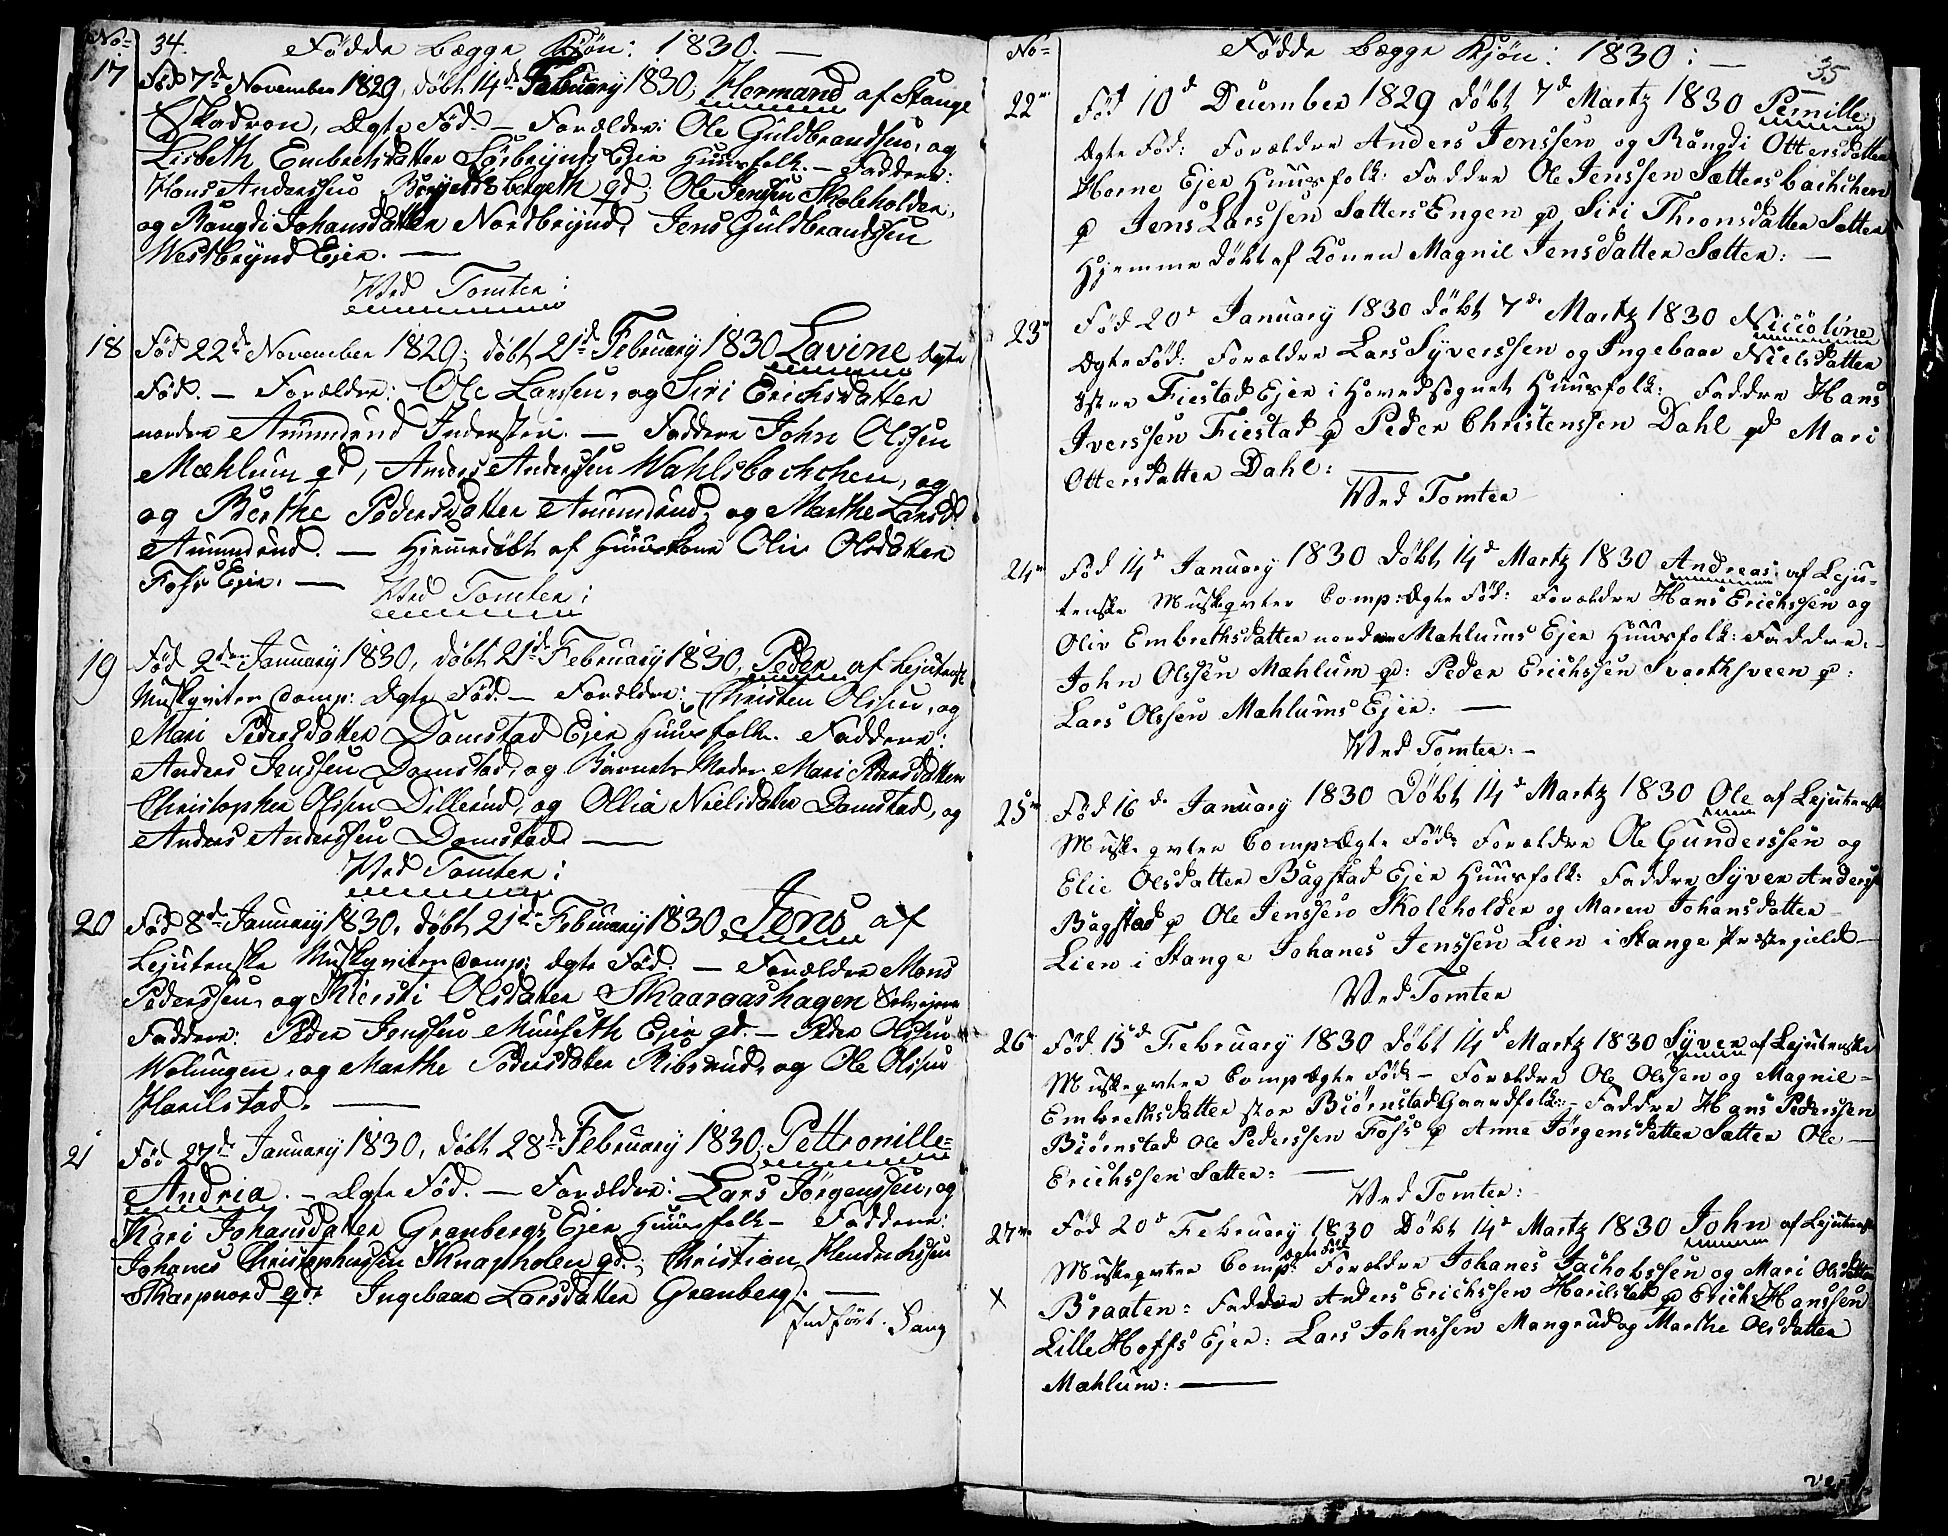 No= 34. Fødde begge Kjøn: 1830. —
17 Fød 7de November 1829, døbt 14de February 1830, Hermand af Stange
Eskadron, Ægte Fød. — Forældre: Ole Guldbrandsen, og
Lisbeth Embretsdatter Eier Huusfolk. — Faddere:
Hans Anderssen gd; Ole Jenssen Skoleholder,
og Rangdi Johansdatter Nordbrynd, Jens Guldbrandssen
Westbrynd Eier. —
Ved Tomter:
18 Fød 22de November 1829; døbt 21de February 1830 Lavine Ægte
Fød. — Forældre: Ole Larssen, og Siri Erichsdatter
nordre Amundrud Inderster. — Faddere John Olssen
Mæhlum gd, Anders Anderssen Wahlsbachchen, og
og Berthe Pedersdatter Amundrud, og Marthe Larsd.
Amundrud. — Hjemmedøbt af Huuskone Oliv Olsdatter
Foss Eier. —
Ved Tomter:
19 Fød 2de January 1830, døbt 21de February 1830, Peder af Lejutenst
Muskqviter Comp: Ægte Fød. — Forældre: Christen Olssen, og
Mari Pedersdatter Domstad Ejer Huusfolk. Faddere:
Anders Jenssen Domstad, og Barnets Moder Mari Pedersdatter
Christopher Olssen Dillerud, og Ollia Nielsdatter Domstad, og
Anders Anderssen Domstad —
Ved Tomter:
20 Fød 8de January 1830, døbt 21de February 1830 Jens af
Lejutenske Muskqviter Comp: Ægte Fød. — Forældre Mons
Pederssen, og Kiersti Olsdatter Skaaraashagen Selvejere
Faddere: Peder Jenssen Muuseth Ejer gd. — Peder Olssen
Wolungen, og Marthe Pedersdatter Ribsrud, og Ole Olssen
Harilstad. —
21 Fød 27de January 1830, døbt 28de February 1830, Pettronille=
Andria. — Ægte Fød. — Forældre: Lars Jørgenssen, og
Kari Johansdatter Granbergs Ejer Huusfolk — Faddere:
Johanes Christophersen Knapholen gd., Christian Hendrichssen
Skarpnord gd: Ingebaar Larsdatter Granberg. —
Indført. Sang
No= Fødde begge Kjøn: 1830: — 35
22 Fød 10d December 1829 døbt 7d Martz 1830 Pernille,
Ægte Fød: Forældre Anders Jenssen og Rangdi Ottersdatter
Horne Ejer Huusfolk: Faddre Ole Jenssen Sættersbachchen
p Jens Larssen Sætters Engen gd Siri Thronsdatter Sætter
Hjemme døbt af Konen Magnil Jensdatter Sætter: —
23 Fød 20d January 1830 døbt 7de Martz 1830 Niccoline
Ægte Fød: Forældre Lars Syverssen og Ingebaar Nielsdatter
østre Fiestad Ejer i Hovedsognet Huusfolk: Faddre Hans
Iverssen Fiestad p Peder Christenssen Dahl gd Mari
Ottersdatter Dahl: —
Ved Tomter
24 Fød 14d January 1830 Døbt 14d Martz 1830 Andreas af Leju-
tenske Muskqviter Comp: Ægte Fød: Forældre Hans Erichssen og
Oliv Embrethsdatter nordre Mæhlums Ejer Huusfolk: Faddre:
John Olssen Mæhlum gd: Peder Erichssen Svarthsveen p:
Lars Olssen Mæhlums Ejer: —
Ved Tomter: —
25 Fød 16de January 1830 Døbt 14d Martz 1830 Ole af Lejutenske
Muskeqviter Comp: Ægte Fød: Forældre Ole Gunderssen og
Elie Olsdatter Bagstad Ejer Huusfolk: Faddre Syver Anderss
Bagstad p Ole Jenssen Skoleholder og Maren Johansdatter
Lien i Stange Johanes Jenssen Lien i Stange Præstegield —
Ved Tomter
26 Fød 15d February 1830 Døbt 14d Martz 1830 Syver af Lejutenske
Muskeqviter Comp Ægte Fød: — Forældre Ole Olssen og Magnil=
Embrethsdatter stor Biørnstad Gaardfolk: — Faddre Hans Pederssen
Biørnstad Ole Pederssen Foss p Anne Jørgensdatter Sætter Ole —
Erichssen Sætter: —
Ved Tomter:
27 Fød 20d February 1830 Døbt 14d Martz 1830 John af Lejutenske
Muskeqviter Comp: Ægte Fød Forældre Johanes Jachobssen og Mari Olsdatter
X Braaten: Faddre Anders Erichssen Harilstad p Erich Hanssen
Lille Hoffs Ejer: Lars Johnssen Mangrud og Marthe Olsdatter
Mæhlum: —